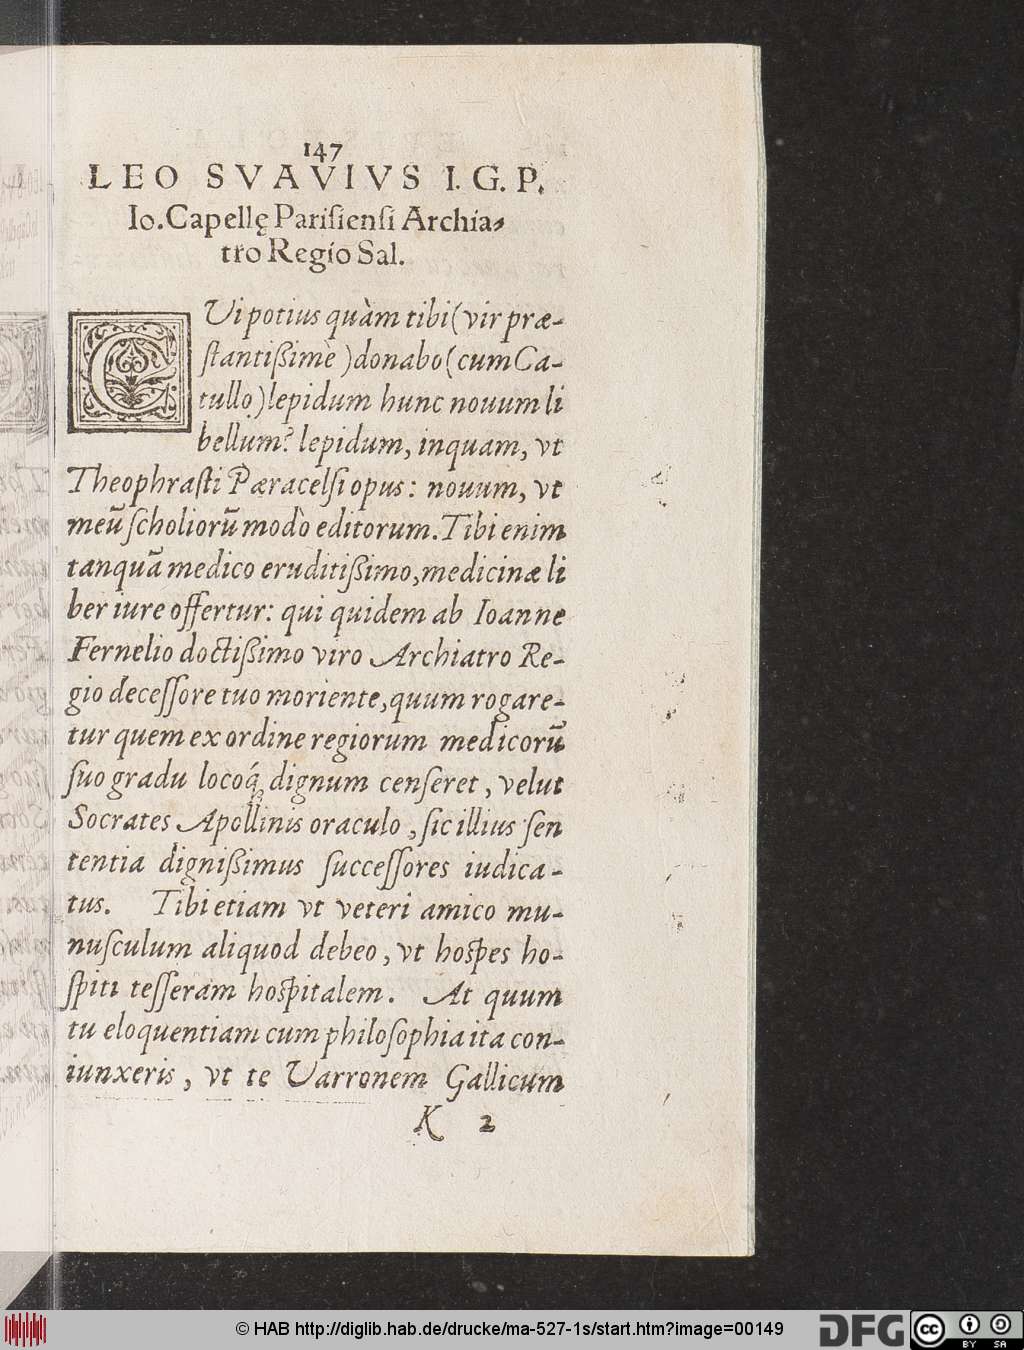 147
LEO SVAVIVS I. G. P.
Io. Capellę Parisiensi Archia-
tro Regio Sal.
CVi potius quàm tibi (vir præ-
ſtantißime) donabo (cum Ca-
tullo) lepidum hunc nouum li
bellum? lepidum, inquam, vt
Theophraſti Pæracelſi opus: nouum, vt
meũ ſcholiorũ modò editorum. Tibi enim
tanquã medico eruditißimo, medicinæ li
ber iure offertur: qui quidem ab Ioanne
Fernelio doctißimo viro Archiatro Re-
gio deceſſore tuo moriente, quum rogare-
tur quem ex ordine regiorum medicorũ
ſuo gradu locoq́; dignum cenſeret, velut
Socrates Apollinis oraculo, ſic illius ſen
tentia dignißimus ſucceſſores iudica-
tus. Tibi etiam vt veteri amico mu-
nuſculum aliquod debeo, vt hoſpes ho-
ſpiti teſſeram hoſpitalem. At quum
tu eloquentiam cum philoſophia ita con-
iunxeris, vt te Varronem Gallicum
K 2
© HAB http://diglib.hab.de/drucke/ma-527-1s/start.htm?image=00149
DFG
cc
BY SA